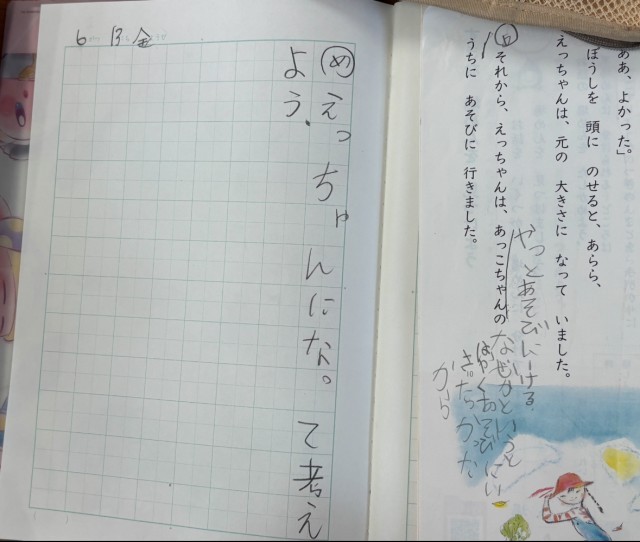 ああ、よかった。」
ぼうしを 頭に のせると、あらら、
えっちゃんは、元の 大きさに なって いました。
それから、えっちゃんは、あっこちゃんの
うちに あそびに 行きました。
やっとあそびにいける
なぜかというと
はやくあそびにい
ぎたらかった
から
6 13 金
め えっちゃんになって考え
よう。